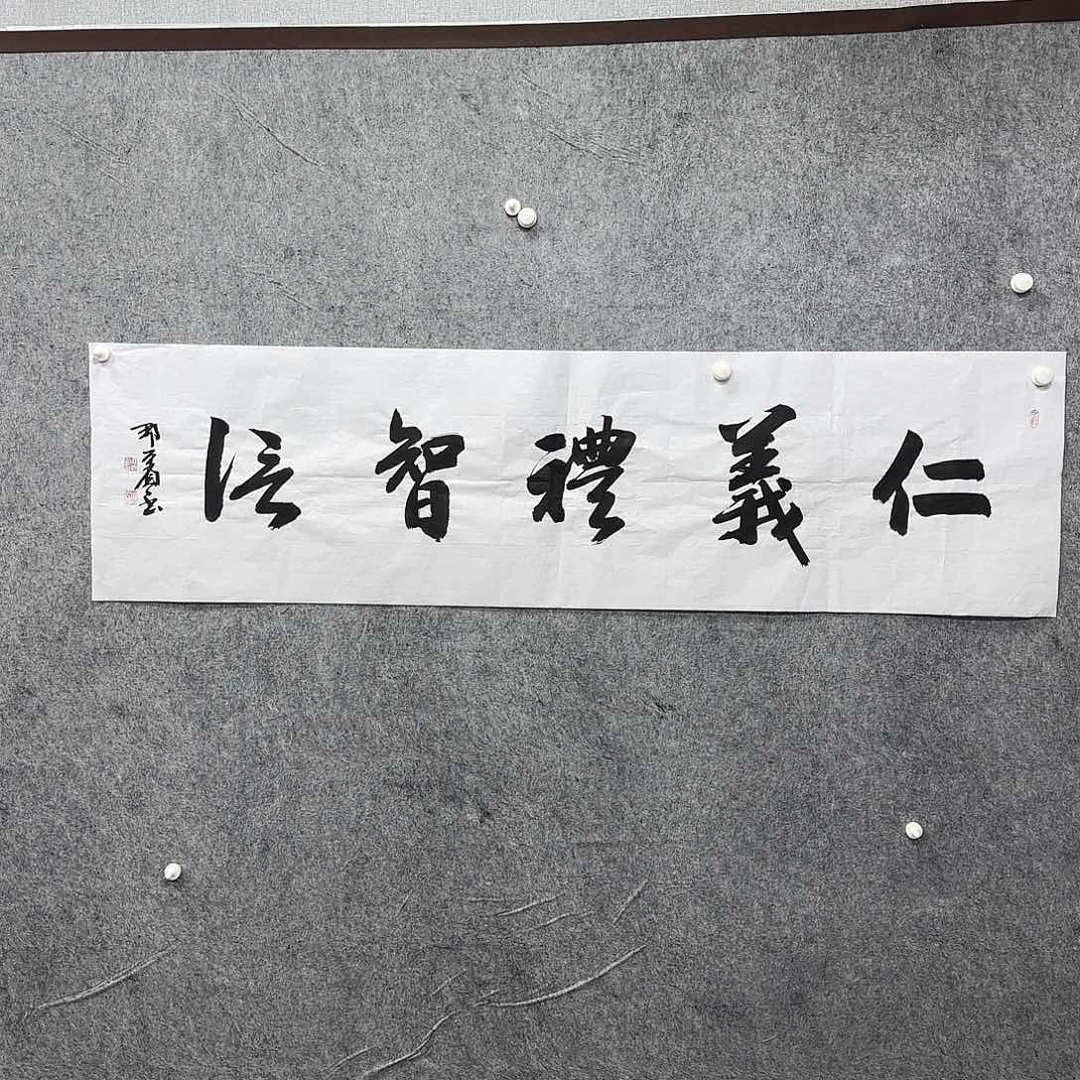 仁義禮智信